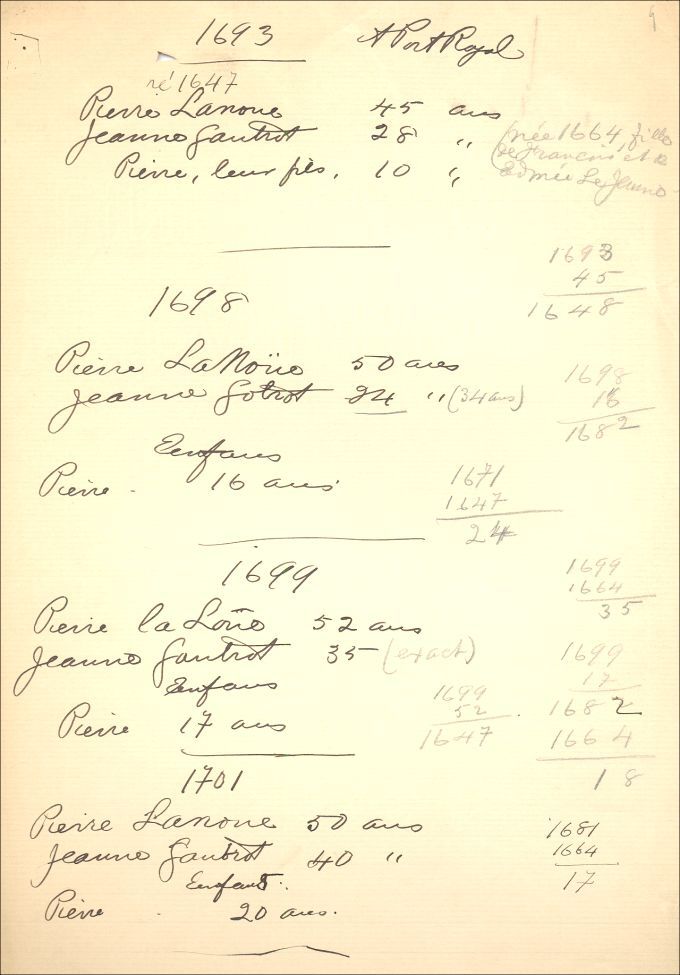 1693 A Port Royal
né 1647
Pierre Lanoue 45 ans
Jeanne Gautrot 28 "
(née 1664, fille
de Francois et de
Edmée LeJeune
Pierre, leur fils, 10 "
1693
45
1648
1698
Pierre LaNoüe 50 ans
Jeanne Gotrot 24 " (34 ans)
1698
16
1682
Enfans
Pierre . 16 ans
1671
1647
24
1699
1699
1664
35
Pierre la Loñe 52 ans
Jeanne Gautrot 35 (exact)
Enfans
Pierre 17 ans
1699
52
1647
1699
17
1682
1664
18
1701
Pierre Lanoue 50 ans
Jeanne Gautrot 40 "
Enfants.
Pierre . 20 ans.
1681
1664
17